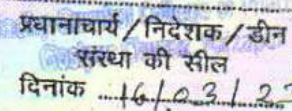 प्रधानाचार्य/निदेशक/डीन
संस्था की सील
दिनांक ..16/03/2